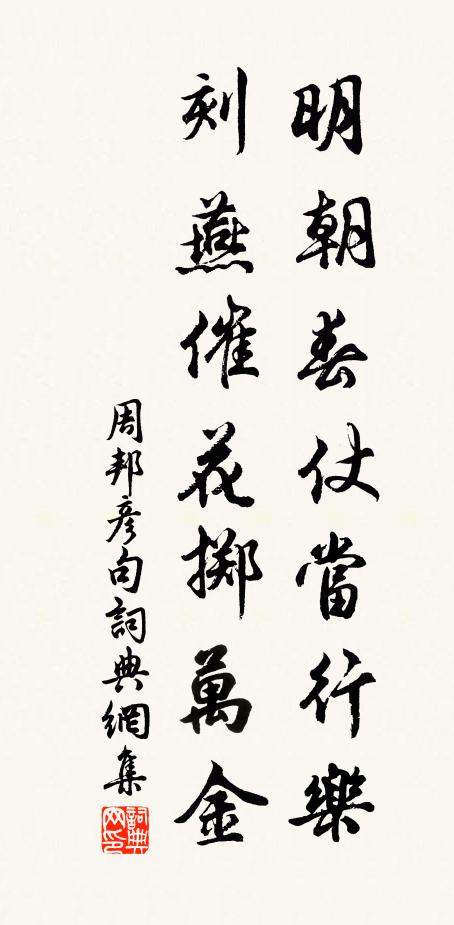 明朝春仗當行樂
刻燕催花擲萬金
周邦彥句詞典網集
詞典网印